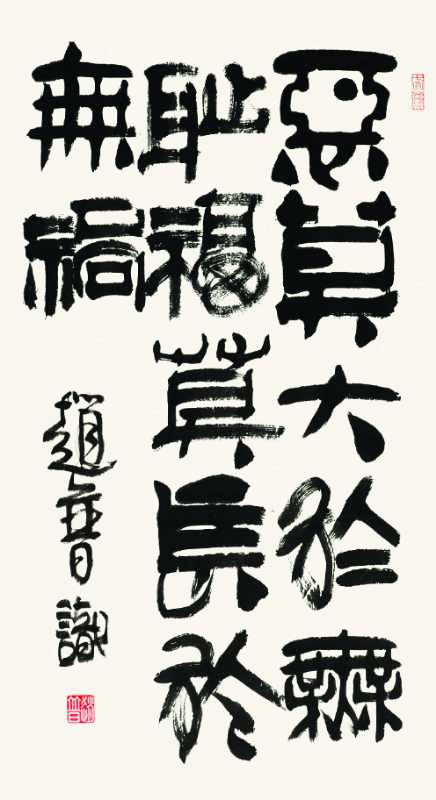 惡莫大於無
恥福莫長於
無禍
趙普識